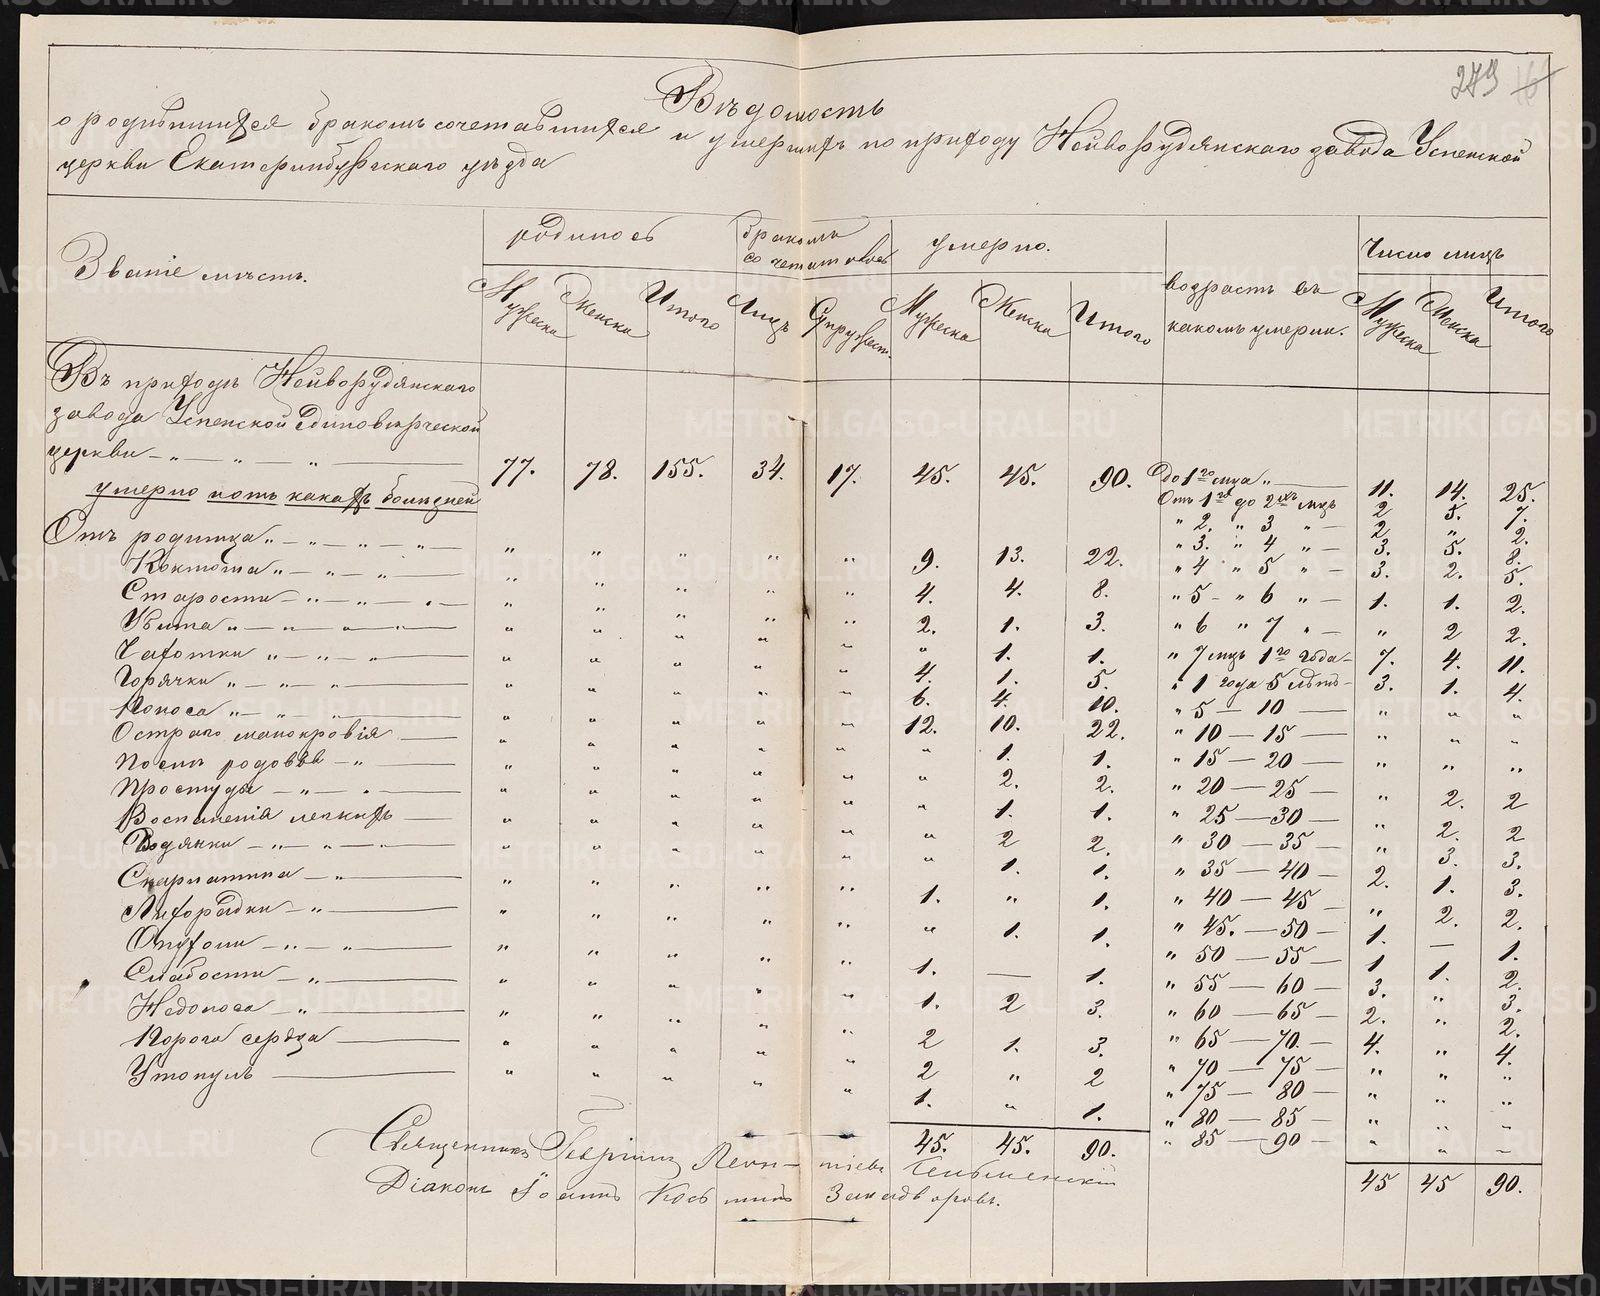 279
Вѣдомость
о родившихся бракомъ сочетавшихся и умершихъ по приходу Нейворудянскаго завода Успенской
церкви Екатеринбургскаго уѣзда
Званіе мѣстъ. родилось бракомъ сочетавось умерло. возрастъ въ какомъ умерли. Число лицъ
Мужеска Женска Итого Лицъ Супружест. Мужеска Женска Итого Мужеска Женска Итого
Въ приходѣ Нейворудянскаго
завода Успенской Единовѣрческой
церкви - „ — „ — „ — 77. 78. 155. 34. 17. 45. 45. 90.
умерло и отъ какихъ болѣзней
Отъ родимца „ „ „ „ „ „ 9. 13. 22.
Коклюша „ „ „ „ „ „ 4. 4. 8.
Старости „ „ „ „ „ 2. 1. 3.
Убита „ „ „ „ „ „ 1. 1.
Чахотки „ „ „ „ „ 4. 1. 5.
Горячки „ „ „ „ „ 6. 4. 10.
Поноса „ „ „ „ „ 12. 10. 22.
Остраго малокровія „ „ „ „ „ „ 1. 1.
Послѣ родовъ „ „ „ „ „ „ 2. 2.
Простуды „ „ „ „ „ „ 1. 1.
Воспаленія легкихъ „ „ „ „ „ „ 2 2.
Водянки „ „ „ „ „ „ 1. 1.
Скарлатина „ „ „ „ „ 1. „ 1.
Лихорадки „ „ „ „ „ „ 1. 1.
Опухоли „ „ „ „ „ 1. — 1.
Слабости „ „ „ „ „ 1. 2 3.
Недоноса „ „ „ „ „ 2 1. 3.
Порога сердца „ „ „ „ „ 2 „ 2
Утонулъ „ „ „ „ „ 1. „ 1.
45. 45. 90.
До 1го мца „ — 11. 14. 25.
Отъ 1го до 2хъ мцъ 2 5. 7.
„ 2. „ 3 „ — 2 „ 2.
„ 3. „ 4 „ — 3. 5. 8.
„ 4 „ 5 „ — 3. 2. 5.
„ 5 - „ 6 „ — 1. 1. 2.
„ 6 „ 7 „ — „ 2 2.
„ 7 мцъ 1го года - 7. 4. 11.
„ 1 года 5 лѣтъ - 3. 1. 4.
„ 5 — 10 — „ „ „
„ 10 — 15 — „ „ „
„ 15 — 20 — „ „ „
„ 20 — 25 — „ 2. 2
„ 25 — 30 — „ 2. 2
„ 30 — 35 — „ 3. 3.
„ 35 — 40 — 2. 1. 3.
„ 40 — 45 — „ 2. 2.
„ 45. — 50 — 1. — 1.
„ 50 — 55 — 1 1. 2.
„ 55 — 60 — 3. „ 3.
„ 60 — 65 — 2. „ 2.
„ 65 — 70. — 4. „ 4.
„ 70 — 75 — „ „ „
„ 75 — 80 — „ „ „
„ 80 — 85 — „ „ „
„ 85 — 90 — „ „ „
45 45 90.
Священникъ Георгіи Леонтіевъ
Діаконъ Іоаннъ Косьминъ Западворовъ.
METRIKI.GASO-URAL.RU